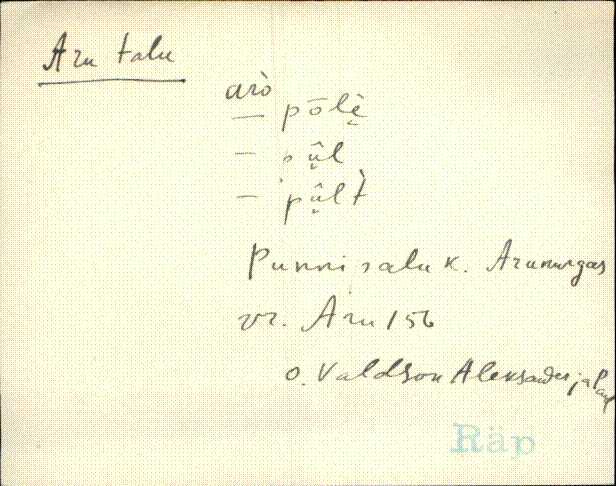 Aru talu
arò
— pōlè̬
— pû̬l
— pû̬lt̀
Punnisalu k. Arunurgas
vr. Aru 156
o. Valdson Aleksander ja Paul
Räp